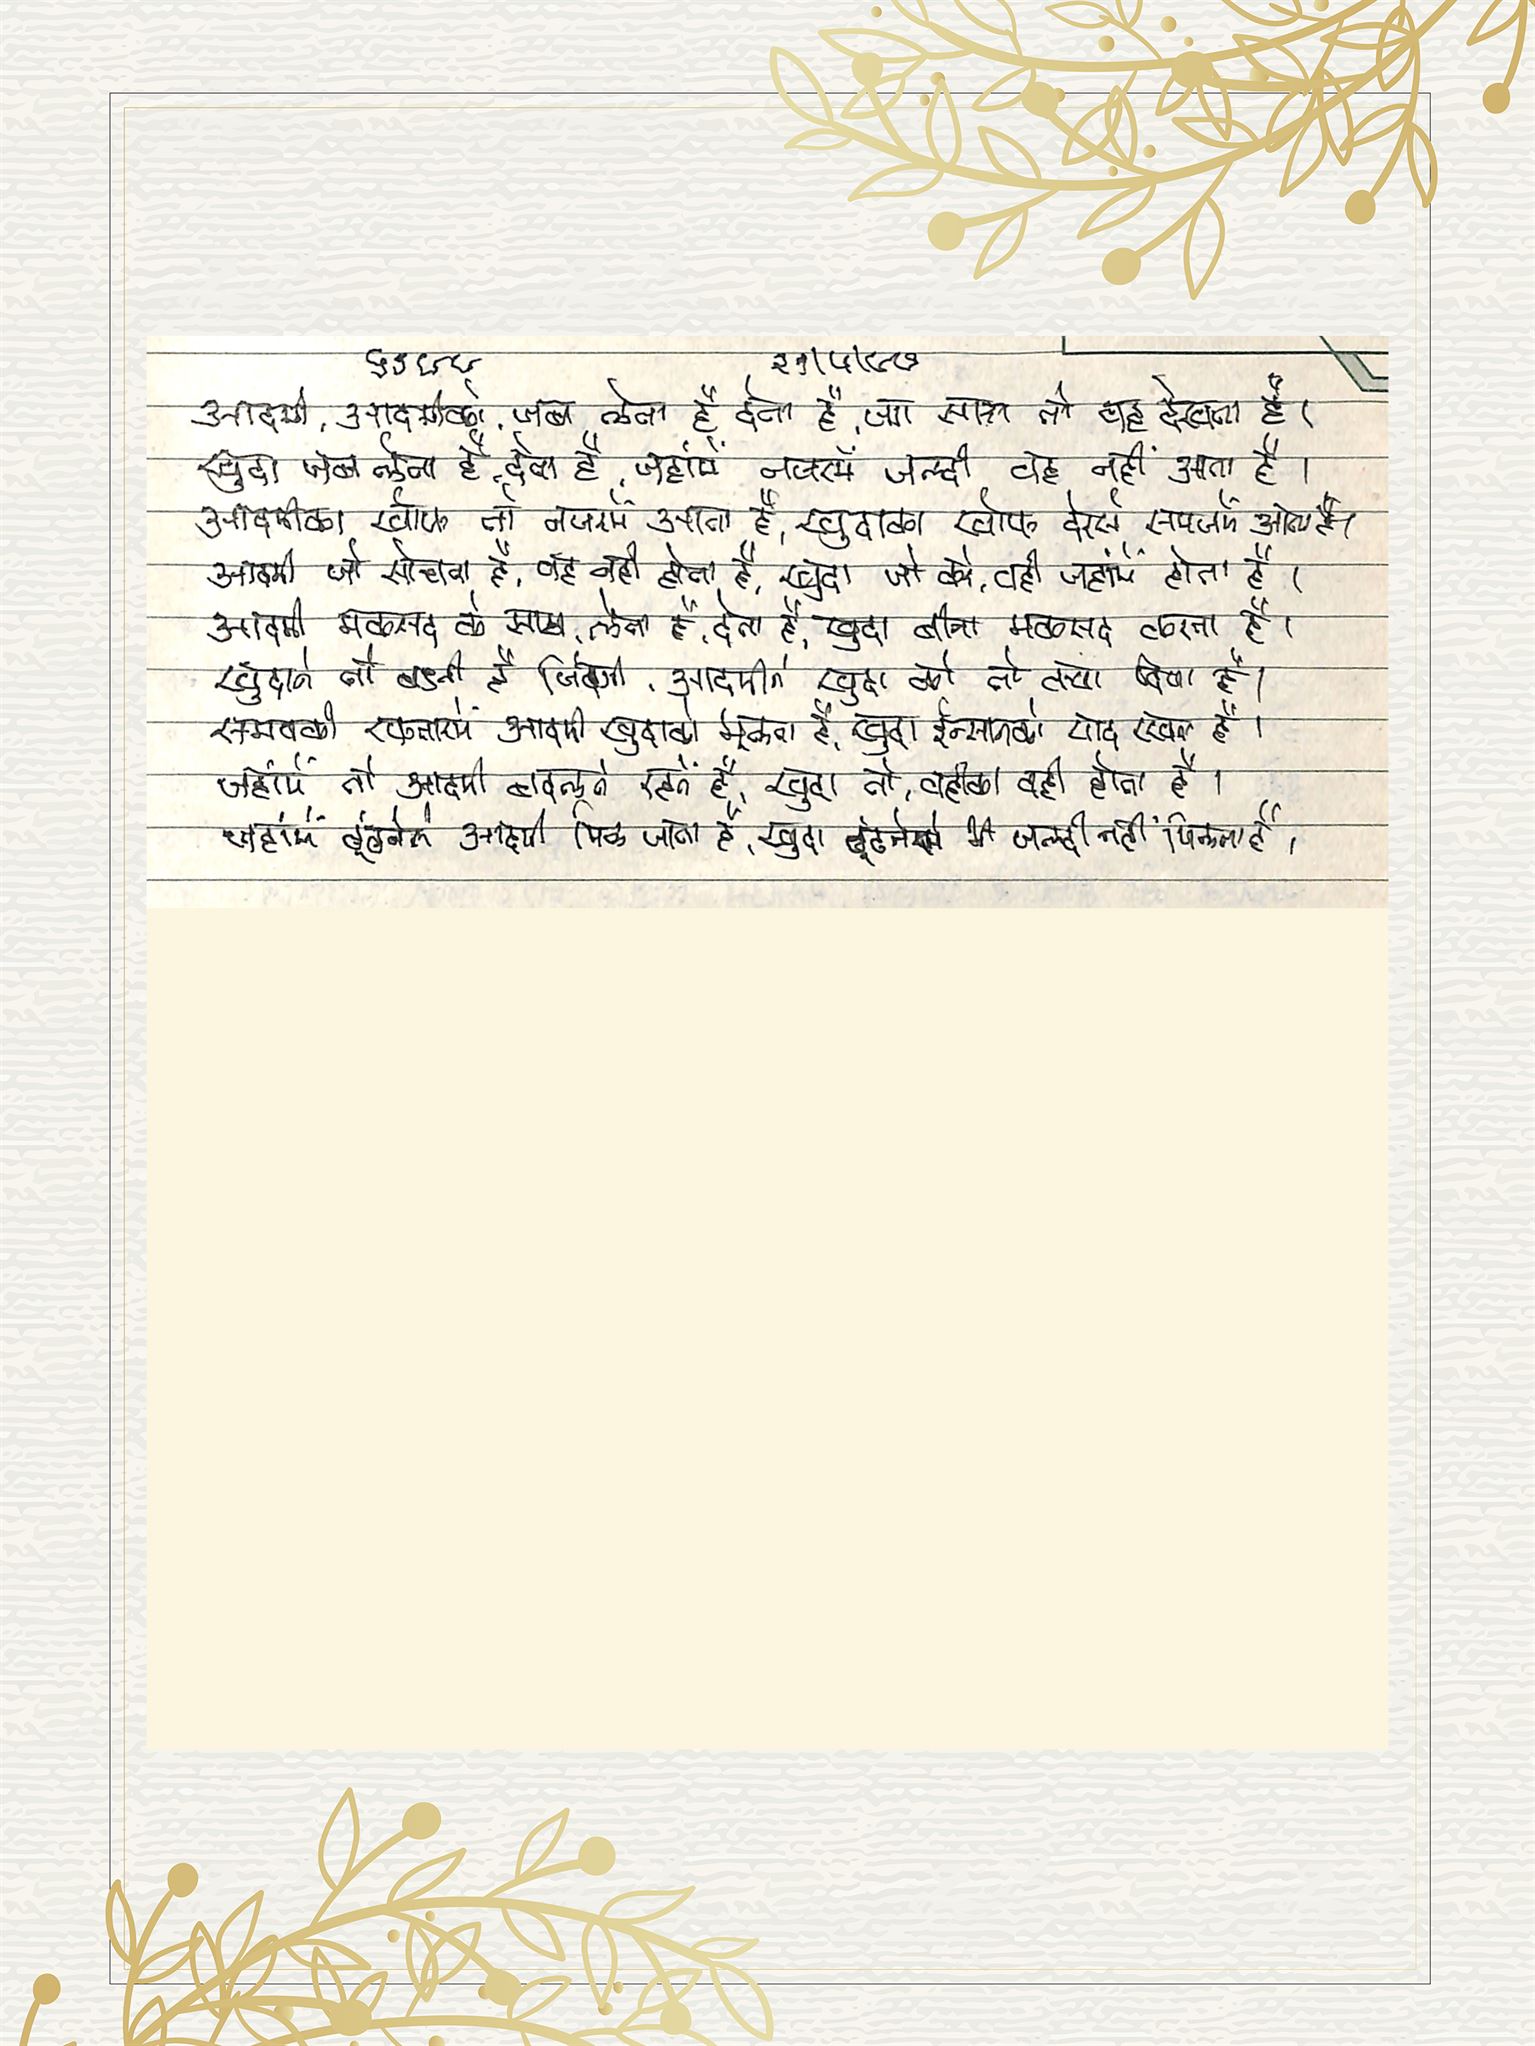 આदमी, आदमीको, जब लेता है देता है, जग सारा तो वह देखता है ।
खुदा जब लेता है, देता है, जहांमें नजरमें जल्दी वह नहीं आता है ।
आदमीका खौफ तो नजरमें आता है, खुदाका खौफ देरसे समजमें आता है ।
आदमी जो सोचता है, वह नही होता है, खुदा जो करे, वही जहांमें होता है ।
आदमी मकसद के साथ, लेता है, देता है, खुदा बीना मकसद करता है ।
खुदाने तो बक्षी है जिंदगी, आदमीने खुदा को तो क्या दिया है ।
समयकी रफतारमें आदमी खुदाको भूलता है, खुदा ईन्सानको याद रखता है ।
जहांमें तो आदमी बदलते रहते है, खुदा तो, वहीका वही होता है ।
जहांमें ढूंढनेसे आदमी मिल जाता है, खुदा ढूंढनेसे भी जल्दी नहीं मिलता है ।